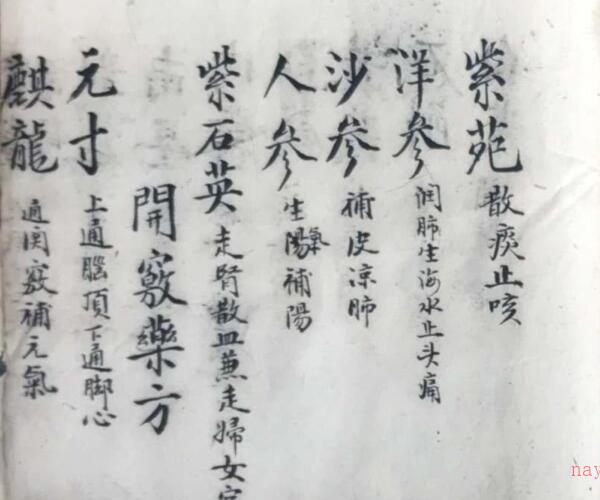 紫苑 散痰止咳
洋參 润肺生海水止头痛
沙參 補皮涼肺
人參 生陽氣補陽
紫石英 走腎散血蕪走婦女宮
開竅藥方
元寸 上通腦頂下通脚心
麒龍 通関竅補元氣
nay